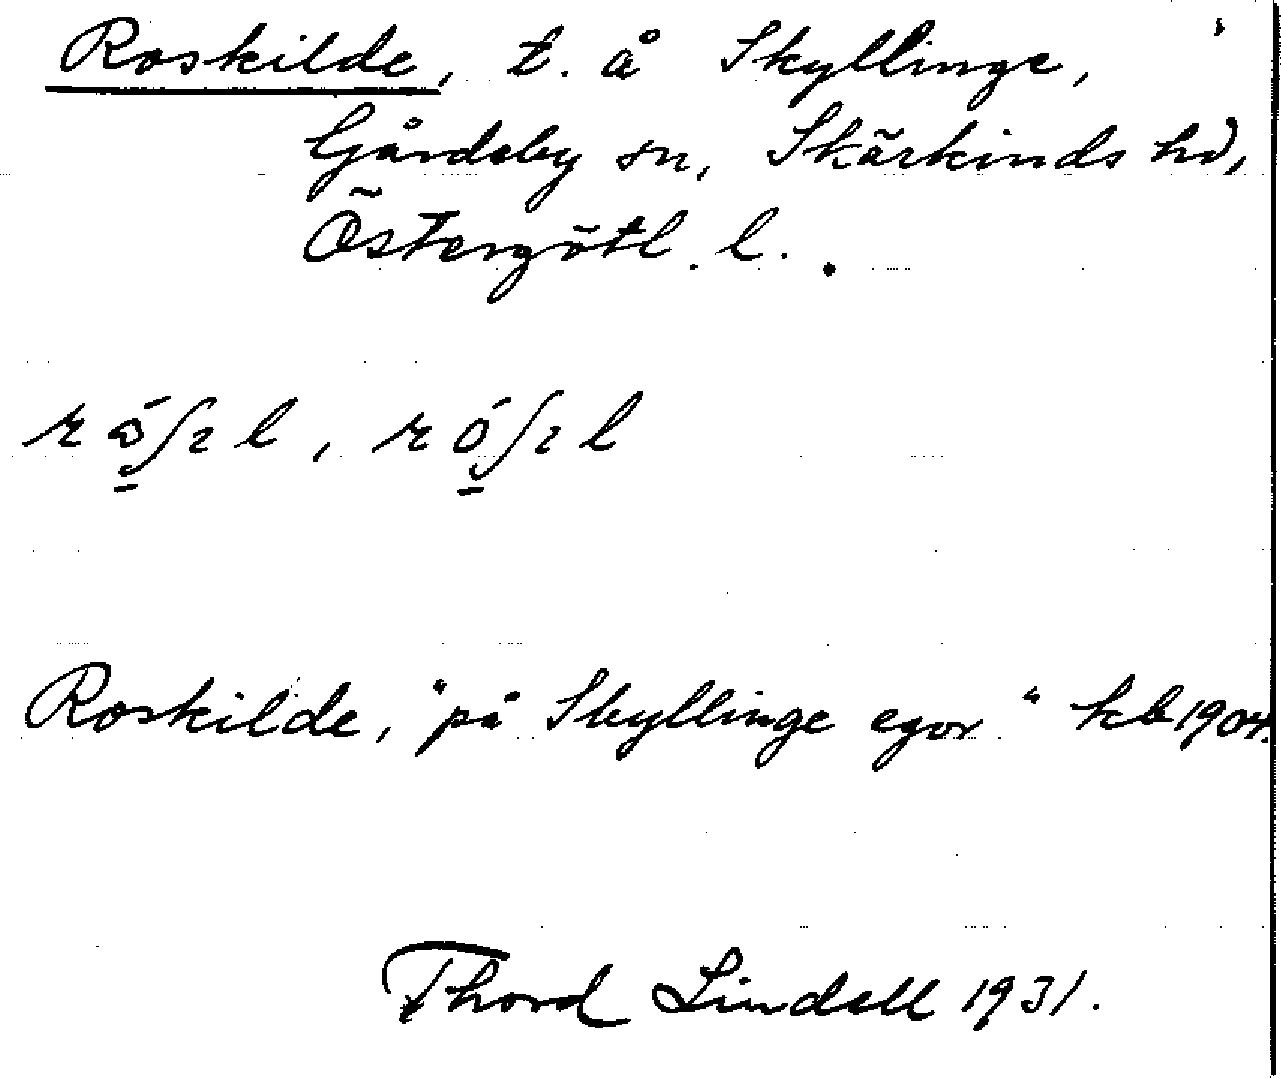 Roskilde, t. å Skyllinge,
Gårdeby sn, Skärkinds hd,
Östergötl. l.
Roskilde, "på Skyllinge egor" kb 1904.
Thord Lindell 1931.